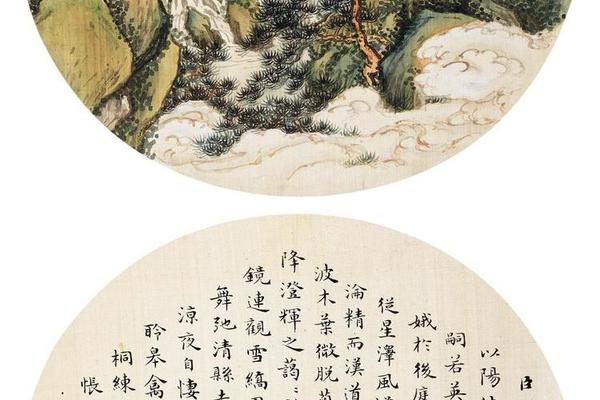 臣
以陽
嗣若英
娥於後庭
從星澤風
淪精而漢道
波木葉微脫
降澄輝之藹〻
鏡連觀雪縞
舞弛清縣
涼夜自悽
聆皋禽
桐練
悵